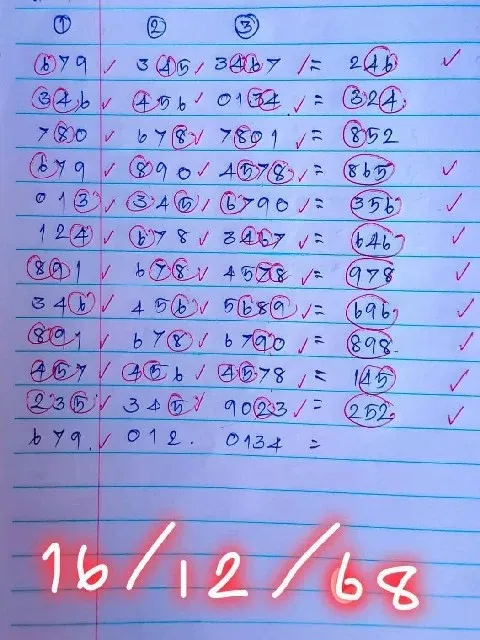 1 2 3
679 ✓ 345 ✓ 3467 ✓ = 246 ✓
346 ✓ 456 ✓ 0134 ✓ = 324
780 ✓ 678 ✓ 7801 ✓ = 852
679 ✓ 890 ✓ 4578 ✓ = 865 ✓
013 ✓ 345 ✓ 6790 ✓ = 356 ✓
124 ✓ 678 ✓ 3467 ✓ = 646 ✓
891 ✓ 678 ✓ 4578 ✓ = 978 ✓
346 ✓ 456 ✓ 5689 ✓ = 696 ✓
891 ✓ 678 ✓ 6790 ✓ = 898 ✓
457 ✓ 456 ✓ 4578 ✓ = 145 ✓
235 ✓ 345 ✓ 9023 ✓ = 252 ✓
679. ✓ 012. 0134 =
16/12/68